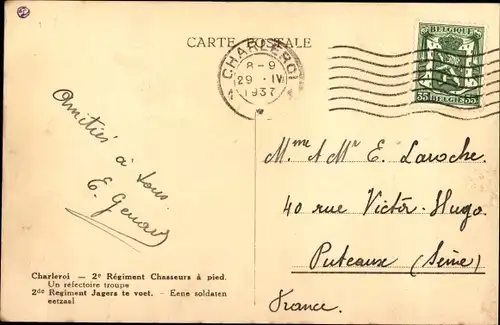 CARTE POSTALE
CHARLEROI
8-9
29 · IV
1937
BELGIQUE
35 35
BELGIE
Amitiés à tous
E.
Mme & Mr E. Laroche
40 rue Victor-Hugo
Puteaux (Seine)
France.
Charleroi — 2e Régiment Chasseurs à pied.
Un réfectoire troupe
2de Regiment Jagers te voet. - Eene soldaten
eetzaal